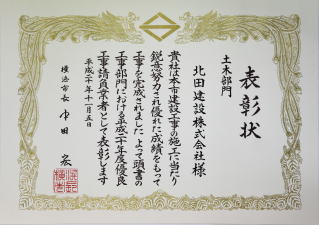 表彰状
土木部門
北田建設株式会社様
貴社は本市建設工事の施工に当たり
鋭意努力され優れた成績をもって
工事を完成されました よって頭書の
工事部門における平成二十年度優良
工事請負業者として表彰します
平成二十年十一月五日
横浜市長 中田 宏